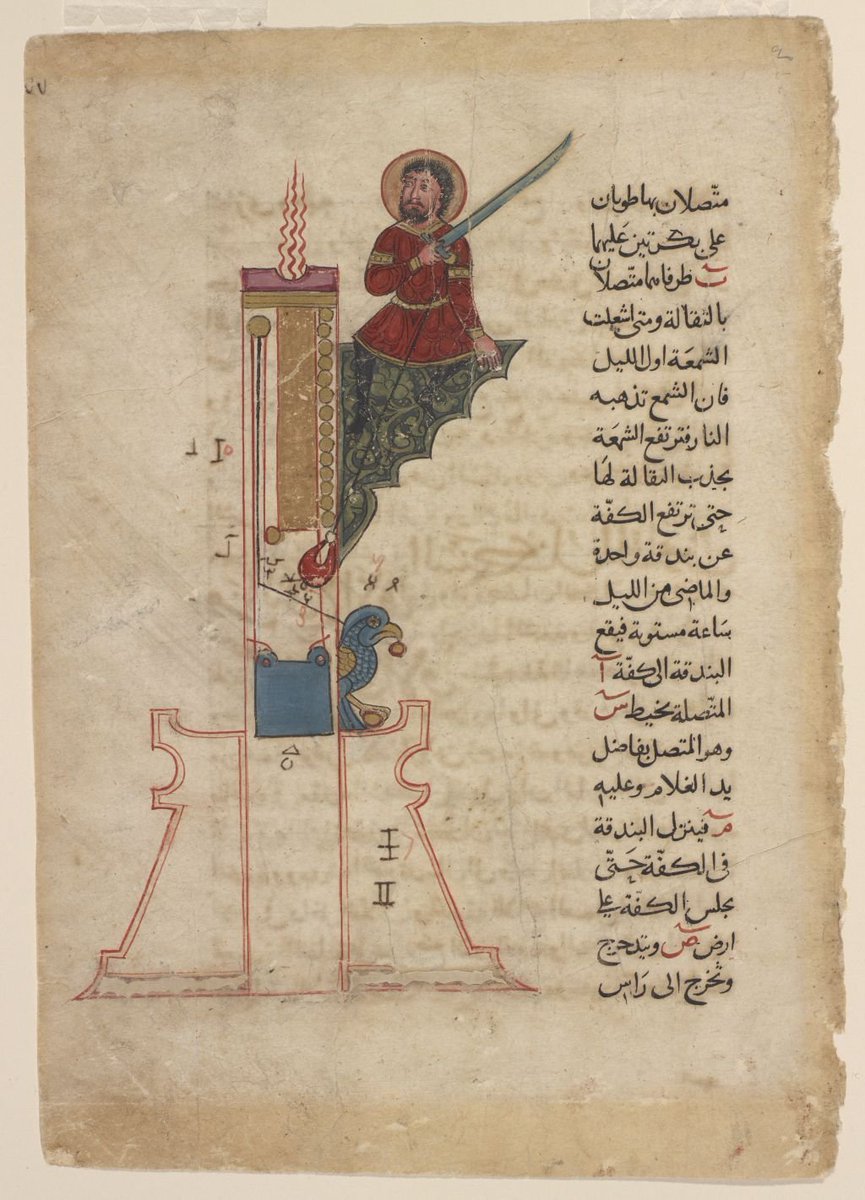 متّصلان بهاطوبان
على بكرتين عليهما
ت طرفاهما متّصلان
بالثقالة ومتى اشعلت
الشمعة اول الليل
فان الشمع تذهبه
النار فترتفع الشمعة
بجذب الثقالة لها
حتى ترتفع الكفّة
عن بندقة واحدة
والماضى من الليل
ساعة مستوية فيقع
البندقة الى كفّة آ
المتّصلة بخيط س
وهو المتصل بفاضل
يد الغلام وعليه
م فينزل البندقة
فى الكفّة حَتّى
يجلس الكفّة على
ارض ص ويتدحرج
وتخرج الى رَاس